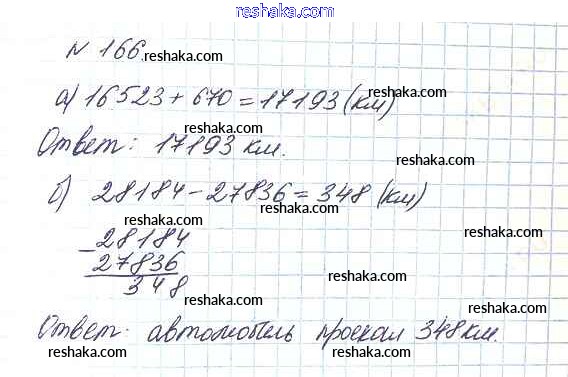 reshaka.com
N 166. reshaka.com
reshaka.com
а) 16523 + 670 = 17193 (км)
reshaka.com
Ответ: 17193 км.
reshaka.com
б) 28184 - 27836 = 348 (км)
reshaka.com
reshaka.com
- 28184
27836
348
reshaka.com
reshaka.com
reshaka.com
Ответ: автомобиль проехал 348 км.
reshaka.com
reshaka.com